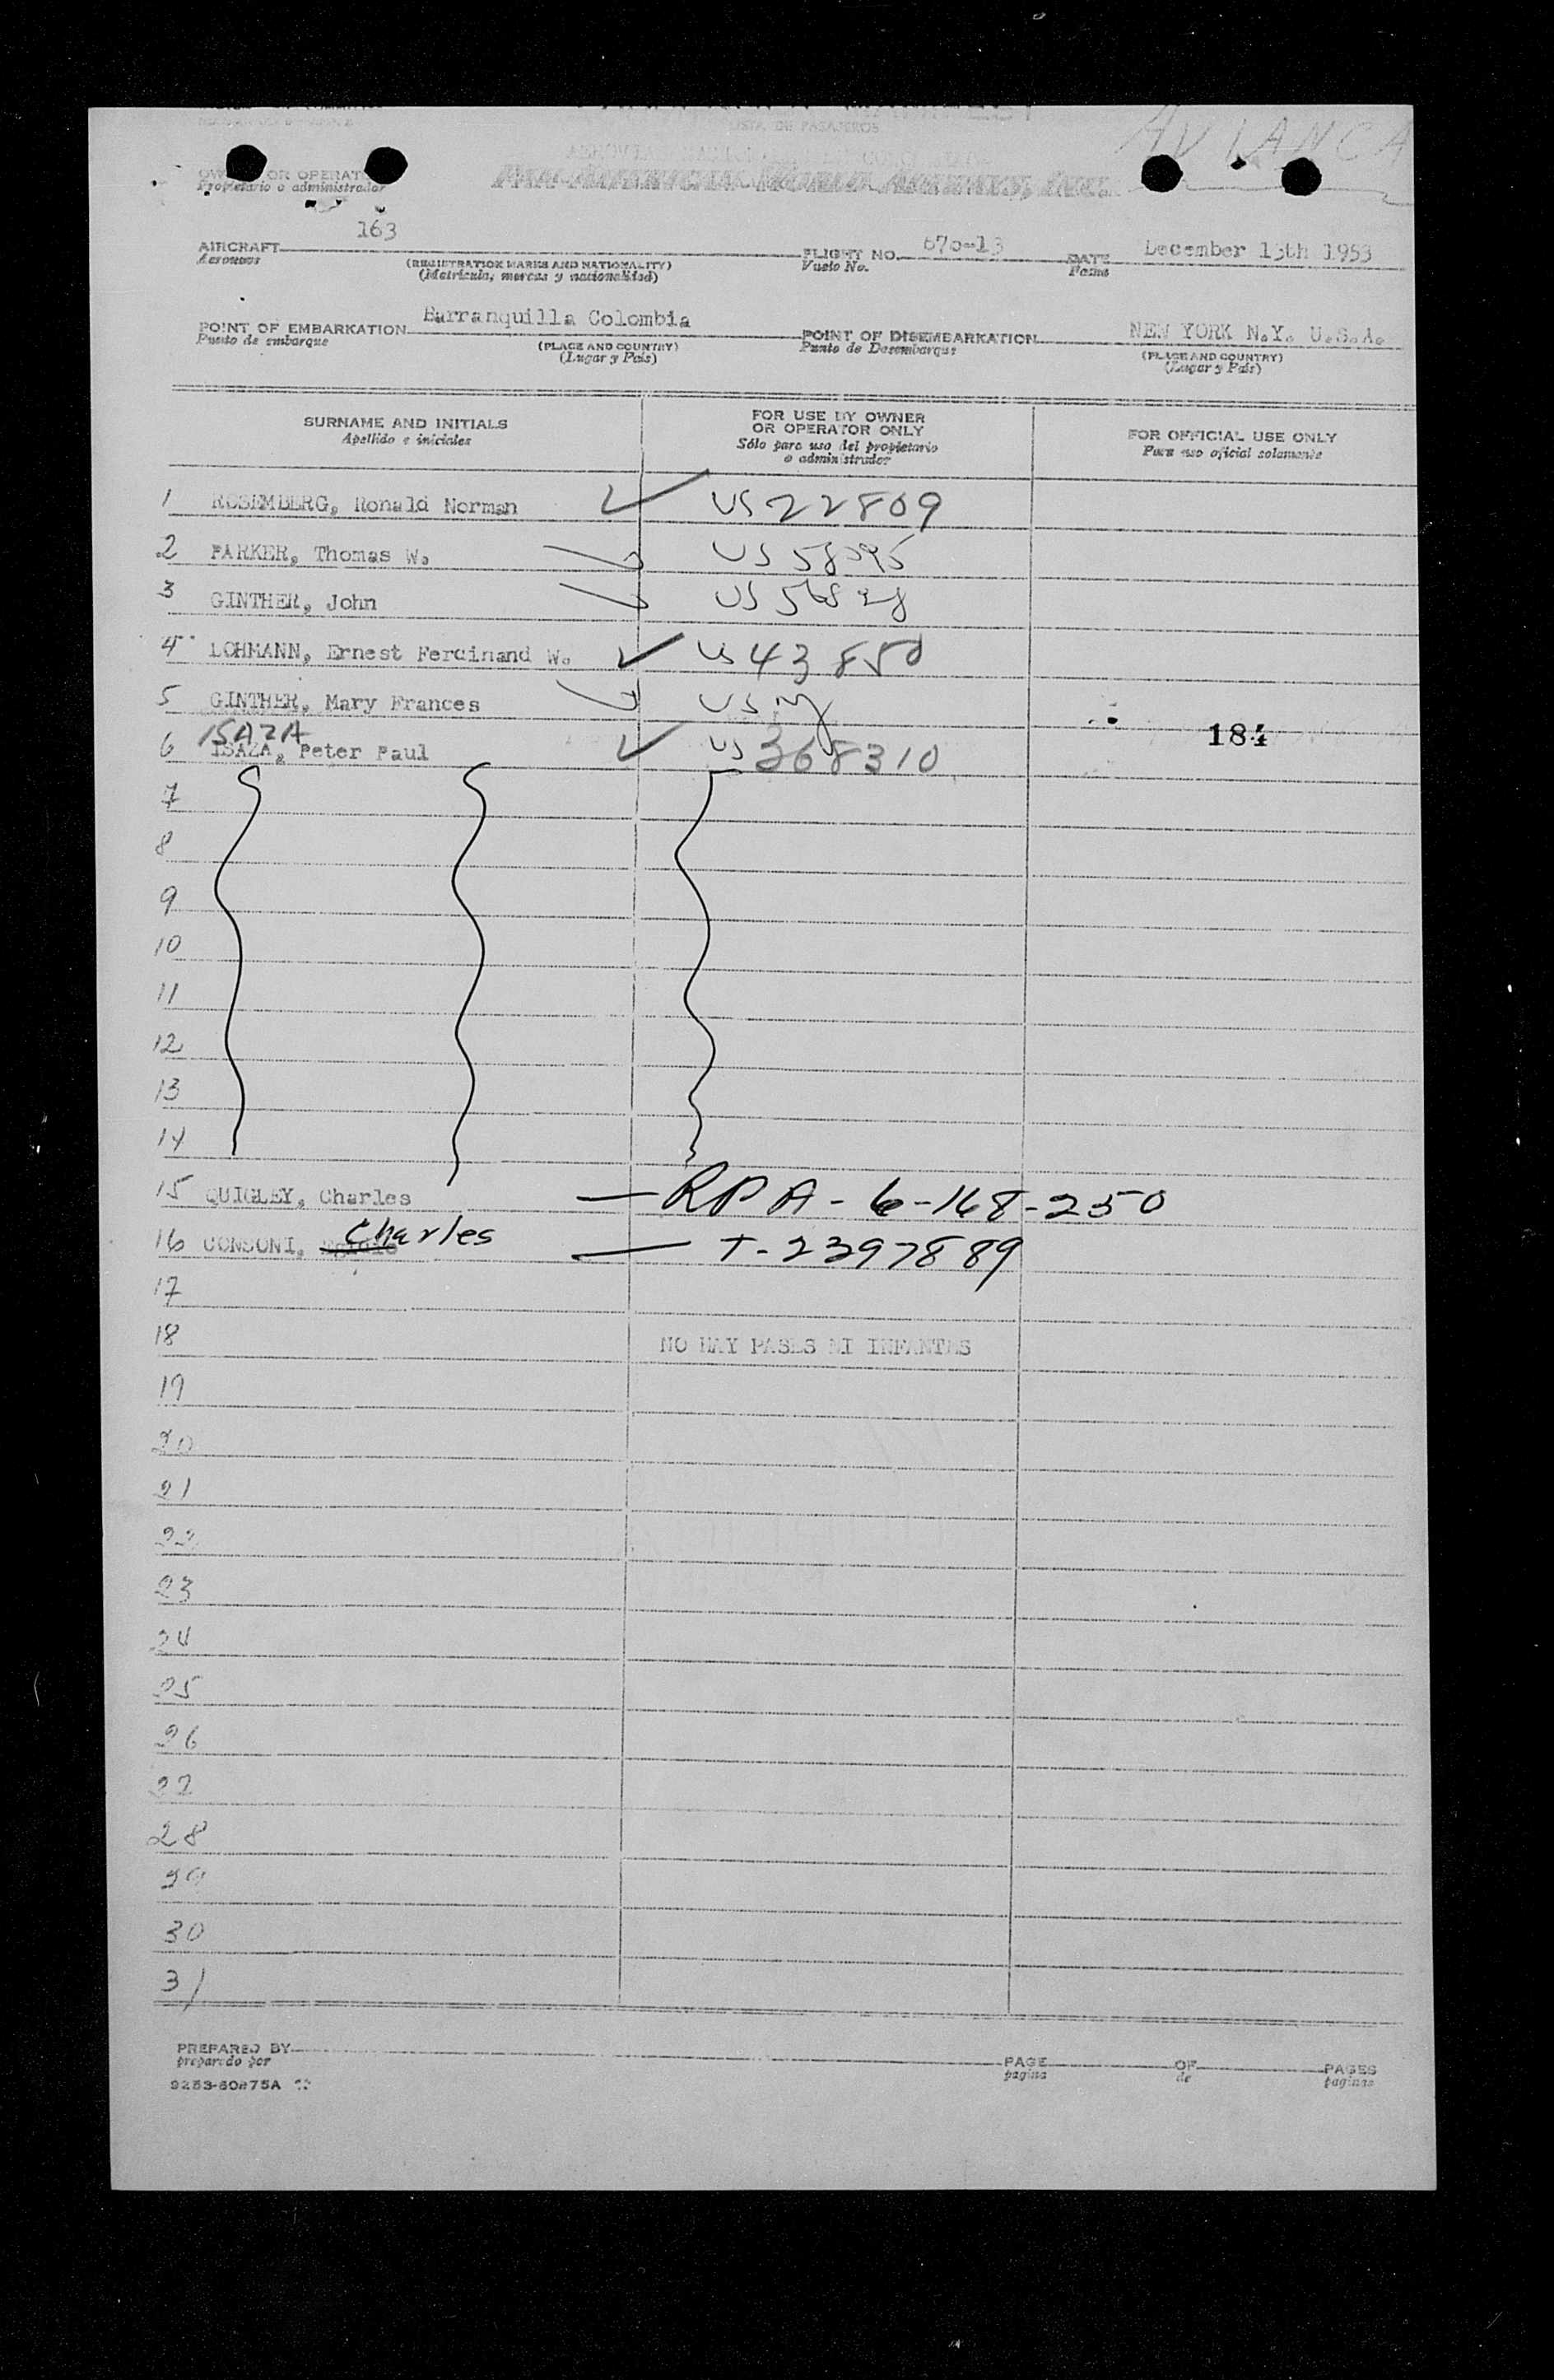 LISTA DE PASAJEROS
AVIANCA
OR OPERAT
Propietario o administrador
PAN AMERICAN WORLD AIRWAYS, INC.
AIRCRAFT 163 FLIGHT NO. 670-13 DATE December 13th 1953
Aeronave (REGISTRATION MARKS AND NATIONALITY) Vuelo No. Fecha
(Matrícula, marcas y nacionalidad)
POINT OF EMBARKATION Barranquilla Colombia POINT OF DISEMBARKATION NEW YORK N.Y. U.S.A.
Puesto de embarque (PLACE AND COUNTRY) Punto de Desembarque (PLACE AND COUNTRY)
(Lugar y País) (Lugar y País)
SURNAME AND INITIALS
Apellido e iniciales
FOR USE BY OWNER
OR OPERATOR ONLY
Sólo para uso del propietario
o administrador
FOR OFFICIAL USE ONLY
Para uso oficial solamente
1 ROSEMBERG, Ronald Norman US 22809
2 PARKER, Thomas W. US
3 GINTHER, John US
4 LOHMANN, Ernest Ferdinand W. US 43850
5 GINTHER, Mary Frances US
184
ISAZA
6 ISAZA, Peter Paul US 368310
7
8
9
10
11
12
13
14
15 QUIGLEY, Charles — RPA-6-168-250
16 CONSONI, Charles — T-2397889
17
18 NO HAY PASES NI INFANTES
19
20
21
22
23
24
25
26
27
28
29
30
31
PREPARED BY PAGE OF PAGES
preparado por pagina de paginas
9253-60875A